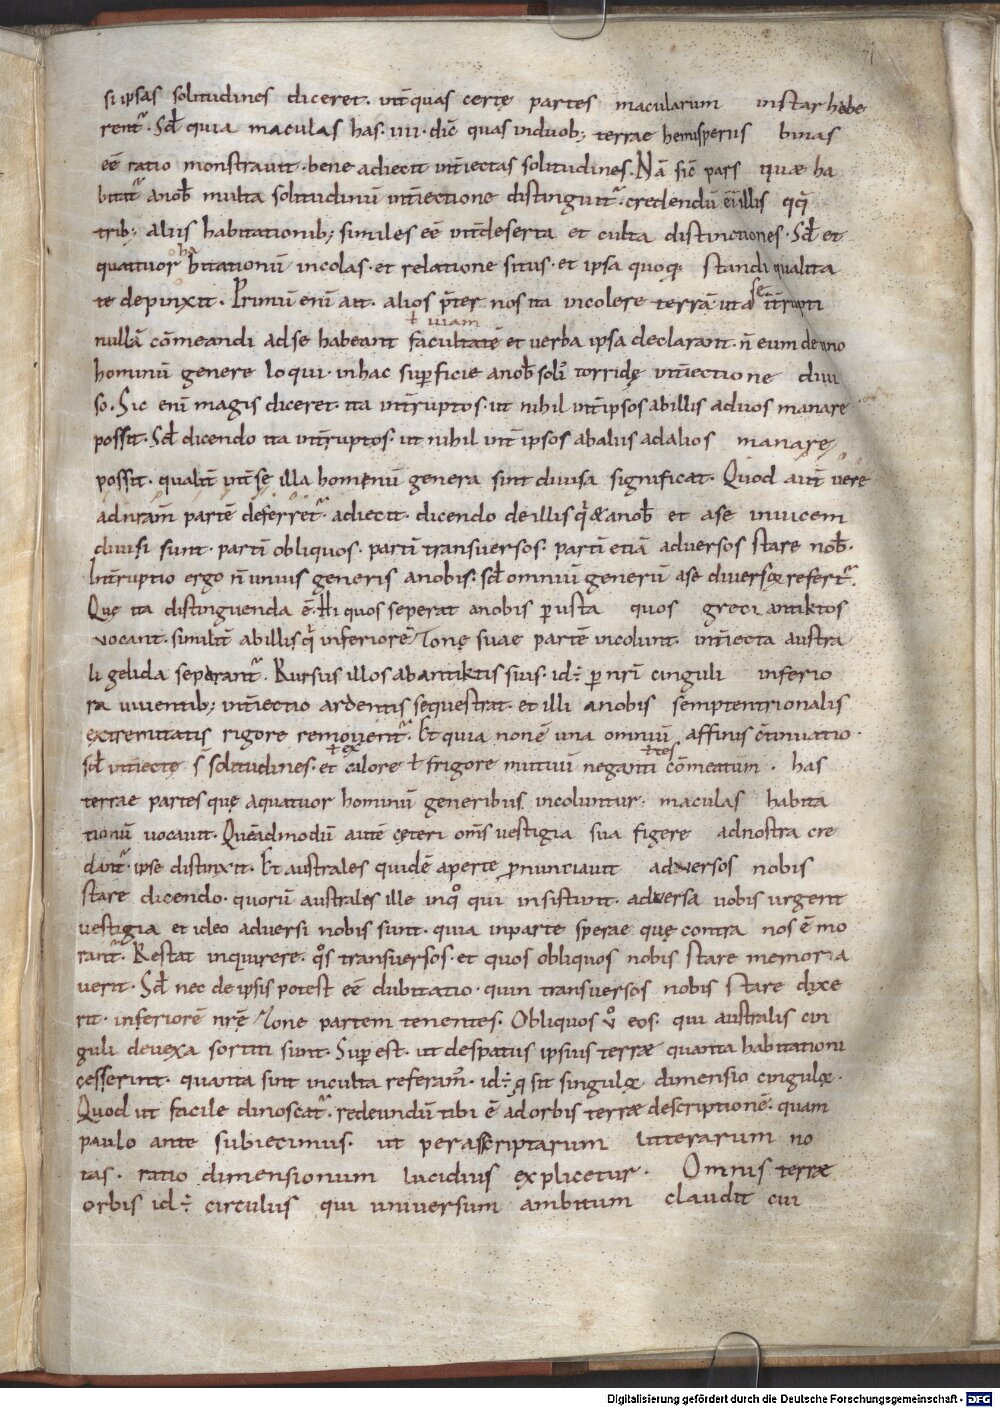 si ipsas solitudines diceret. int̄ quas certę partes macularum instar habe
rent᷑. Sꝫ quia maculas has. iiii. dic̄ quas in duob; terrae hemisperiis binas
eē ratio monstravit. bene adiecit int̄iectas solitudines. Nā sic̄ pars quae ha
bitat᷑ a nob̄ multa solitudinū int̄iectione distinguit᷑. credendū ē in illis
trib; aliis habitationib; similes eē int̄ deserta et culta distinctiones. Sꝫ et
quattuor habitationū incolas. et relatione situs. et ipsa quoq; standi qualita
te depinxit. Primū enī ait. alios p̄ter nos ita incolere terrā uta se int̄rupti
nullā cōmeandi ad se habeant facultatē ł viam et verba ipsa declarant. n̄ eum de uno
hominū genere loqui. in hac sup̄ficie a nob̄ soli᷑ torridę int̄iectione divi
so. Sic enī magis diceret. ita int̄ruptos. ut nihil int̄ ipsos ab illis ad vos manare
possit. Sꝫ dicendo ita int̄ruptos. ut nihil int̄ ipsos ab aliis ad alios manare
possit. qualit̄ int̄ sę illa homenū genera sint divisa significat. Quod aut̄ vere
ad nr̄am partē deferret᷑. adiecit. dicendo de illis q̄ & a nob̄ et a se invicem
divisi sunt. partī obliquos. partī transversos. partī etiā adversos stare nob̄.
Int̄ruptio ergo n̄ unius generis a nobis. sꝫ omniū generū a se diversę refert᷑.
Quę ita distinguenda ē. Hi quos seperat a nobis p̱usta quos greci antiktos
vocant. similit̄ ab illis q̄ inferiorē zonę suae partē incolunt. int̄iecta austra
li gelida seperant᷑. Rursus illos ab antiktis suis. id÷ p̱ nr̄i cinguli inferio
ra viventib; int̄iectio ardentis sequestrat. et illi a nobis semptentrionalis
extremitatis rigore removent᷑. Et quia non ē una omniū affinis c̄tinuatio.
sꝫ int̄iectę s̄ solitudines. et ł ex calore ł frigore mutuū neganti ł tes cōmeatum. has
terrae partes quę a quatuor hominū generibus incoluntur. maculas habita
tionū vocavit. Quēadmodū autē cęteri om̄s vestigia sua figere ad nostra cre
dant᷑. ipse distinxit. Et australes quidē aperte p̱nunciavit adversos nobis
stare dicendo. quorū australes ille inqͦ qui insistunt. adversa vobis urgent
vestigia et ideo adversi nobis sunt. quia in parte sperae quę contra nos ē mo
rant᷑. Restat inquirere. qͦs transversos. et quos obliquos nobis stare memora
verit. Sꝫ nec de ipsis potest eē dubitatio. quin transversos nobis stare dixe
rit. inferiorē nr̄ę zone partem tenentes. Obliquos vͦ eos. qui australis cin
guli devexa sortiti sunt. Sup est. ut de spatiis ipsius terrae quanta habitationi
cesserint. quanta sint inculta referam᷑. id÷ q̱ sit singulę dimensio cingulę.
Quod ut facile dinoscat᷑. redeundū tibi ē ad orbis terrae descriptionē. quam
paulo ante subiecimus. ut per asscriptarum litterarum no
tas. ratio dimensionum lucidius explicetur. Omnis terrae
orbis id÷ circulus qui universum ambitum claudit cui
Digitalisierung gefördert durch die Deutsche Forschungsgemeinschaft - DFG